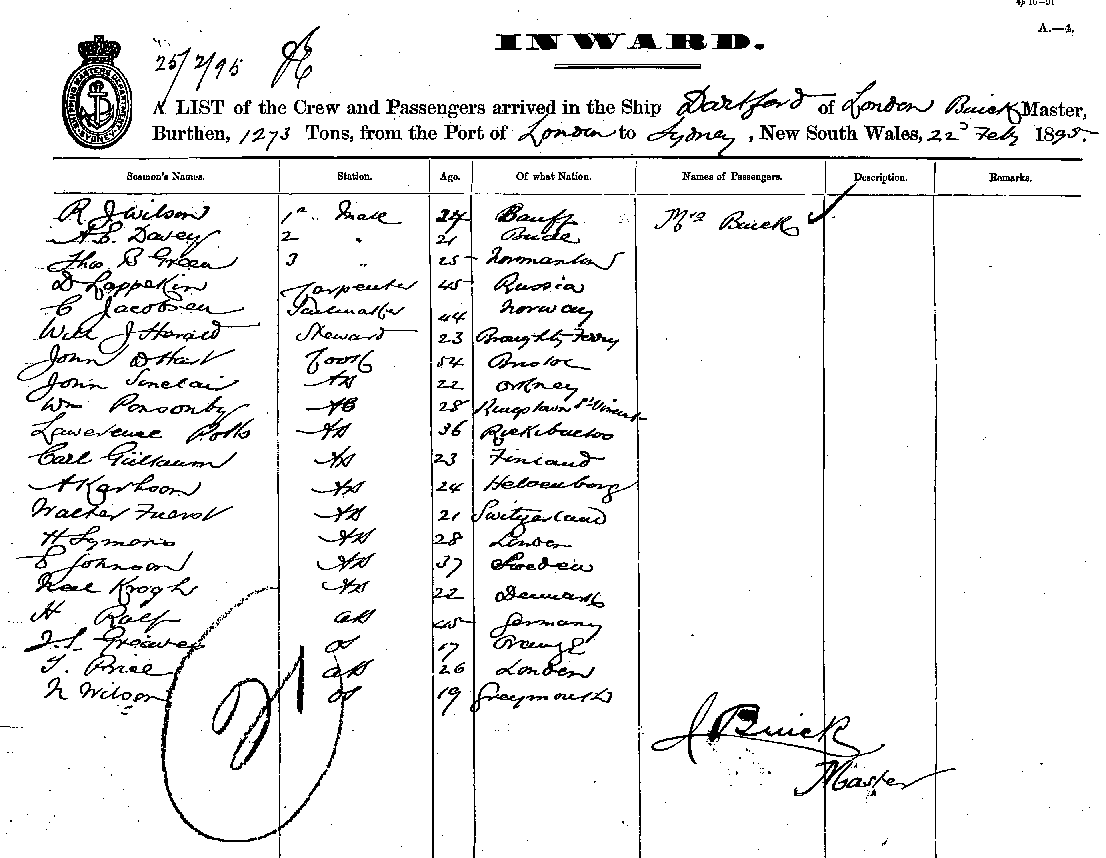 A.—4.
INWARD.
25/2/95
A LIST of the Crew and Passengers arrived in the Ship Dartford of London Buick Master,
Burthen, 1273 Tons, from the Port of London to Sydney, New South Wales, 22d Feby 1895.
Seamen's Names. Station. Age. Of what Nation. Names of Passengers. Description. Remarks.
R J Wilson 1st Mate 24 Banff Mrs Buick ✓
A. E. Davey 2 " 21 Bude
Thos B Green 3 " 25 Normanton
D Lappekin Carpenter 45 Russia
C Jacobsen Sailmaker 44 Norway
Will J Herald Steward 23 Broughty Ferry
John D Hart Cook 54 Bristol
John Sinclair AB 22 Orkney
Wm Ponsonby AB 28 Kingstown St Vincent
Lawrence Potts AB 36
Carl Gullaum AB 23 Finland
A Karlsson AB 24
Walter Fuerst AB 21 Switzerland
H Symons AB 28 London
E Johnson AB 37 Sweden
Neal Krogh AB 22 Denmark
H Ralf AB 45 Germany
J. L. Greaves OS 17 Orange
T. Price AB 26 London
N Wilson OS 19 Greymouth
21
J Buick
Master